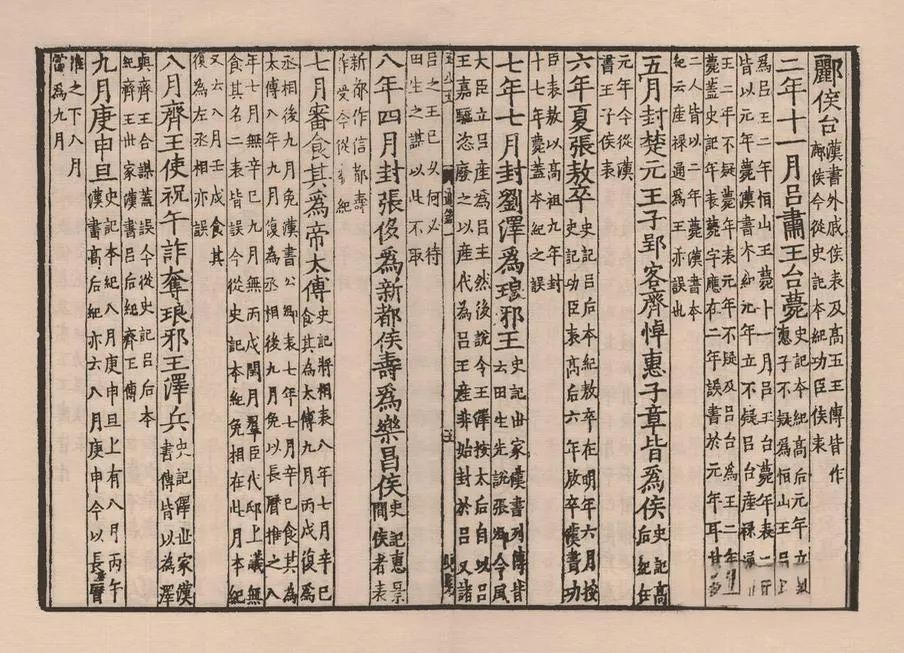 酈侯台漢書外戚侯表及高五王傳皆作
鄜侯今從史記本紀功臣侯表
二年十一月呂肅王台薨史記本紀高后元年立
惠子不疑爲恒山王呂
爲呂王二年恒山王薨十一月呂王台薨年表二
皆以元年薨漢書本紀元年立不疑呂台產祿通
二王二年不疑薨年表元年不疑及呂台爲王二年
薨蓋史記年表薨字應在二年誤書於元年耳
二人皆以二年薨漢書本
紀云座祿通爲王亦誤也
五月封楚元王子郢客齊悼惠子章皆爲侯史記高
后紀在
元年今從侯
書王子侯表
六年夏張敖卒史記呂后本紀敖卒在明年六月按
史記功臣表高后六年敖卒漢書功
臣表敖以高祖九年封
十七年薨蓋本紀之誤
七年七月封劉澤爲琅邪王史記世家漢書列傳皆
云田生先說張卿令風
大臣立呂産爲呂王然後說令王澤按太后自以呂
王嘉驕恣廢之以産代爲呂王産非始封於呂又諸
呂之王已久何必待
田生之謀以此不取
八年四月封張侈爲新都侯壽爲樂昌侯史記惠景
間侯者表
新都作信都壽
作受今從本紀
七月審食其爲帝太傅史記將相表八年七月辛巳
食其爲太傅九月丙戌復爲
丞相後九月免漢書公卿表七年七月辛巳食其爲
太傅八年九月復爲丞相後九月免以長曆推之八
年七月無辛巳九月無丙戌閏月羣臣代邸上議無
食其名二表皆誤今從史記本紀免相在此月本紀
又云八月壬戌食其
復爲左丞相亦誤
八月齊王使祝午詐奪琅邪王澤兵史記澤世家漢
書傳皆以爲澤
與齊王合謀蓋誤今從史記呂后本
紀齊王世家漢書呂后紀齊王傳
九月庚申旦史記本紀八月庚申旦上有八月丙午
漢書高后紀亦云八月庚申今以長曆
推之下八月
當爲九月